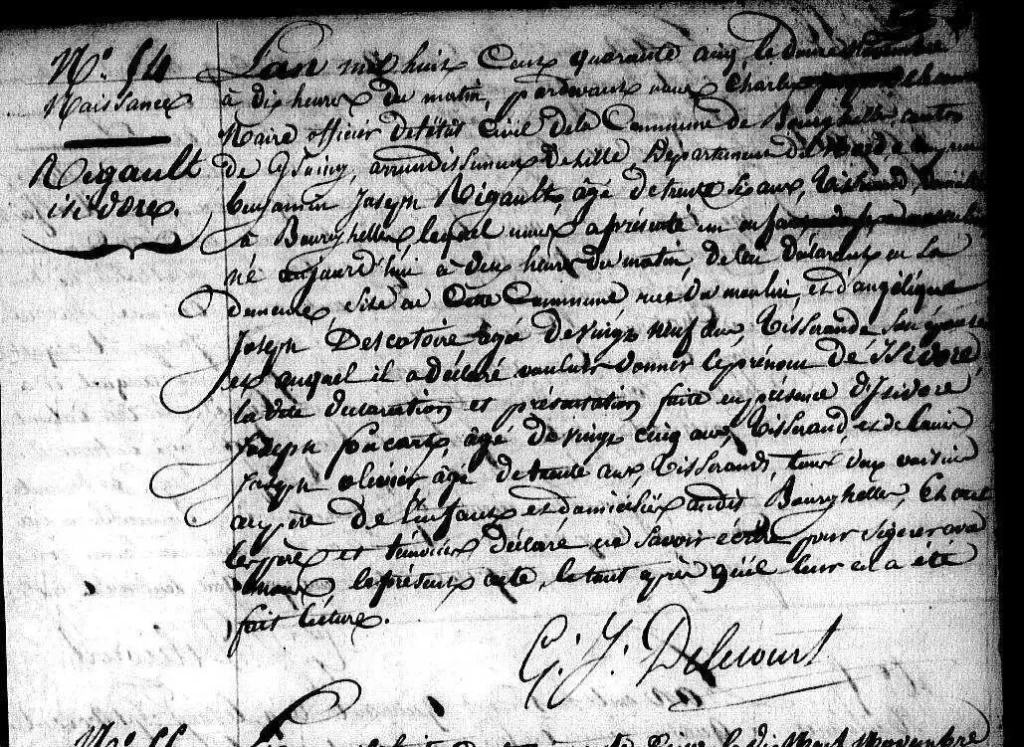 N.° 54
Naissance
Rigault
isidore.
L'an mil huit Cent quarante cinq, le douze novembre
à dix heures du matin, pardevant nous Charles
Maire officier de l'état Civil de la Commune de Bourghelles, canton
de Cysoing, arrondissement de Lille, Département du Nord, a comparu
benjamin Joseph Rigault, âgé de trente six ans, Tisserand, domicilié
à Bourghelles, lequel nous a présenté un enfant du sexe masculin
né aujourd'hui à deux heures du matin, de lui Déclarant en sa
Demeure, sise en Cette Commune rue du moulin, et d'angélique
Joseph Descatoire agée de vingt neuf ans, Tisserande, son épouse
et auquel il a déclaré vouloir donner le prénom de Isidore
la dite declaration et présentation faite en présence d'Isidore
Joseph âgé de vingt cinq ans, Tisserand, et de Louis
Joseph olivier âgé de trente ans, Tisserands, tous deux voisins
au père de l'enfant et domiciliés audit Bourghelles, Et ont
les père et témoins déclaré ne savoir écrire pour signer avec
nous le présent acte, le tout après qu'il leur en a été
fait lécture.
C. J. Delecourt
N.° 55 novembre